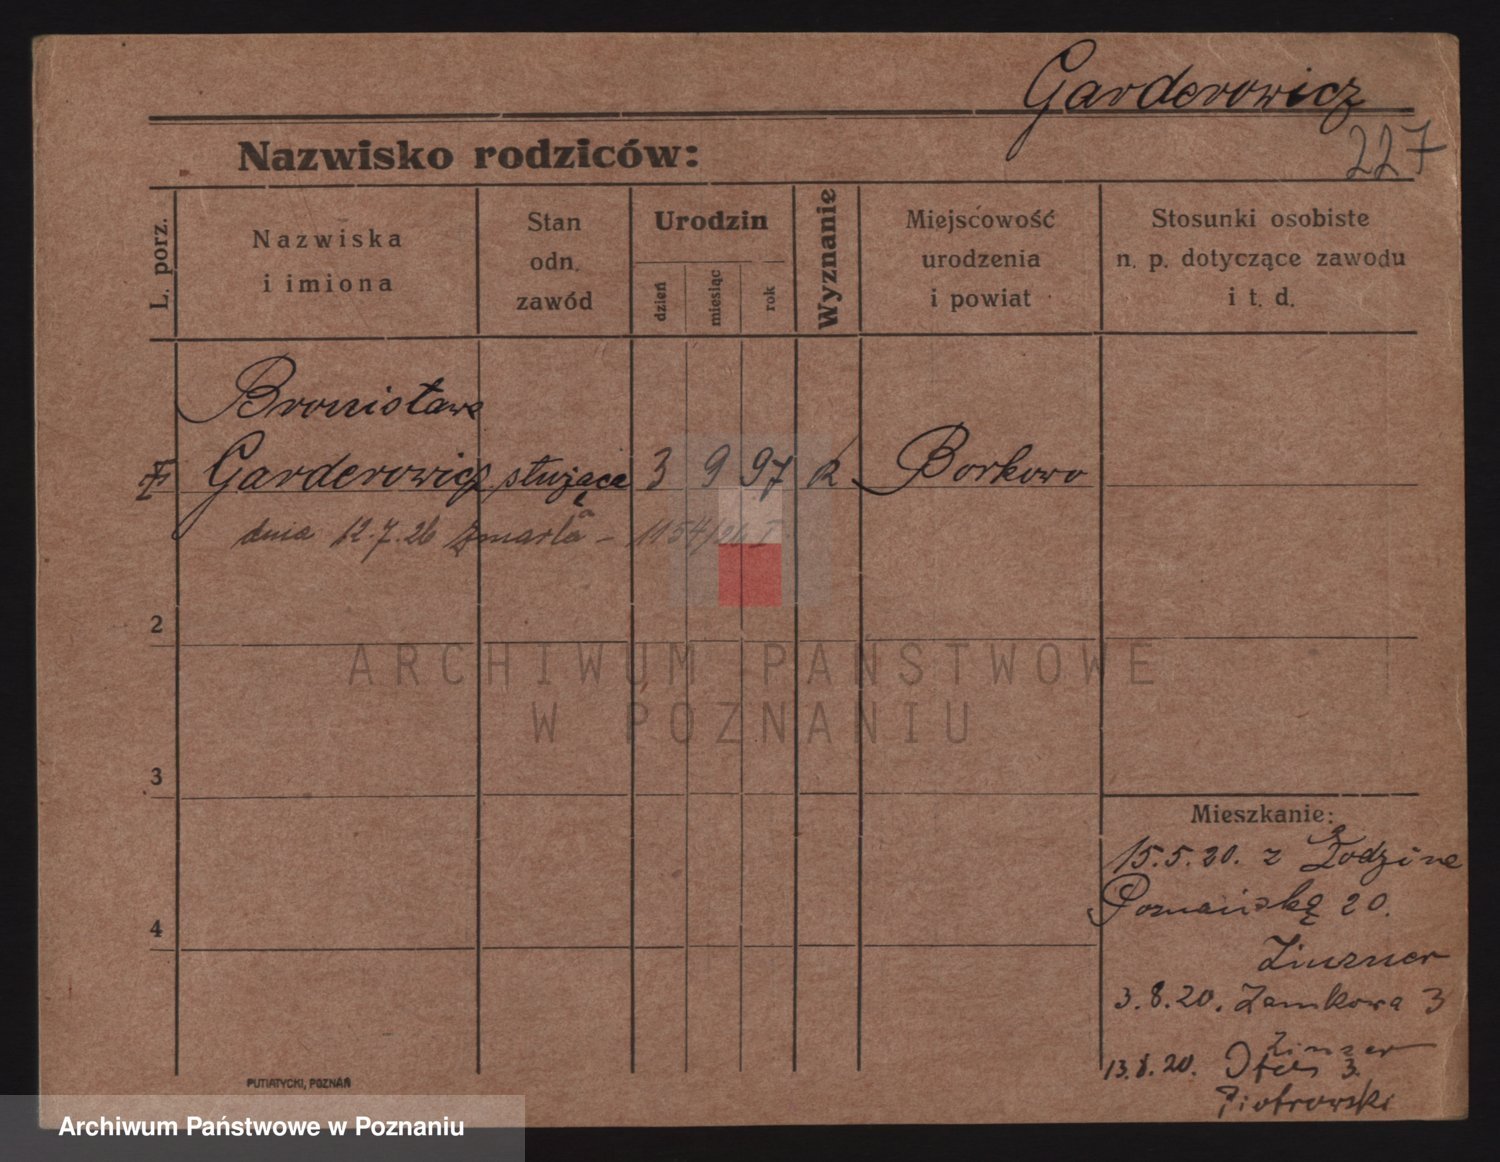 Garderowicz
227
Nazwisko rodziców:
L. porz.
Nazwiska
i imiona
Stan
odn.
zawód
Urodzin
dzień
miesiąc
rok
Wyznanie
Miejscowość
urodzenia
i powiat
Stosunki osobiste
n. p. dotyczące zawodu
i t. d.
Bronisława
Garderowicz służąca 3 9 97 k Borkowo
dnia 12.7.26 zmarła - 1154/26 I
2
3
4
ARCHIWUM PAŃSTWOWE
W POZNANIU
Mieszkanie:
15.5.20. z
Poznańską 20.
3.8.20. Zamkowa 3
13.8.20. 3.
Piotrowski
PUTIATYCKI, POZNAŃ
Archiwum Państwowe w Poznaniu